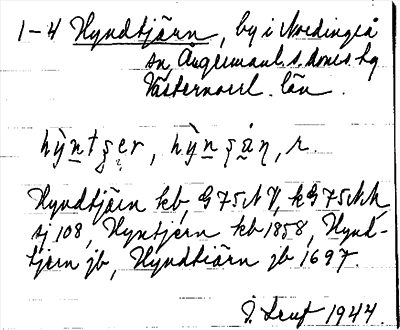 1-4 Hyndtjärn, by i Nordingrå
sn, Ångermanl. s. doms. hg
Västernorrl. län.
hỳntʂer, hỳnʂån, n.
Hyndtjärn kb, G 75 NV, kG 75 NN
sj 108, Hyntjern kb 1858, Hynd-
tjern jb, Hyndtiärn jb 1697.
1944.